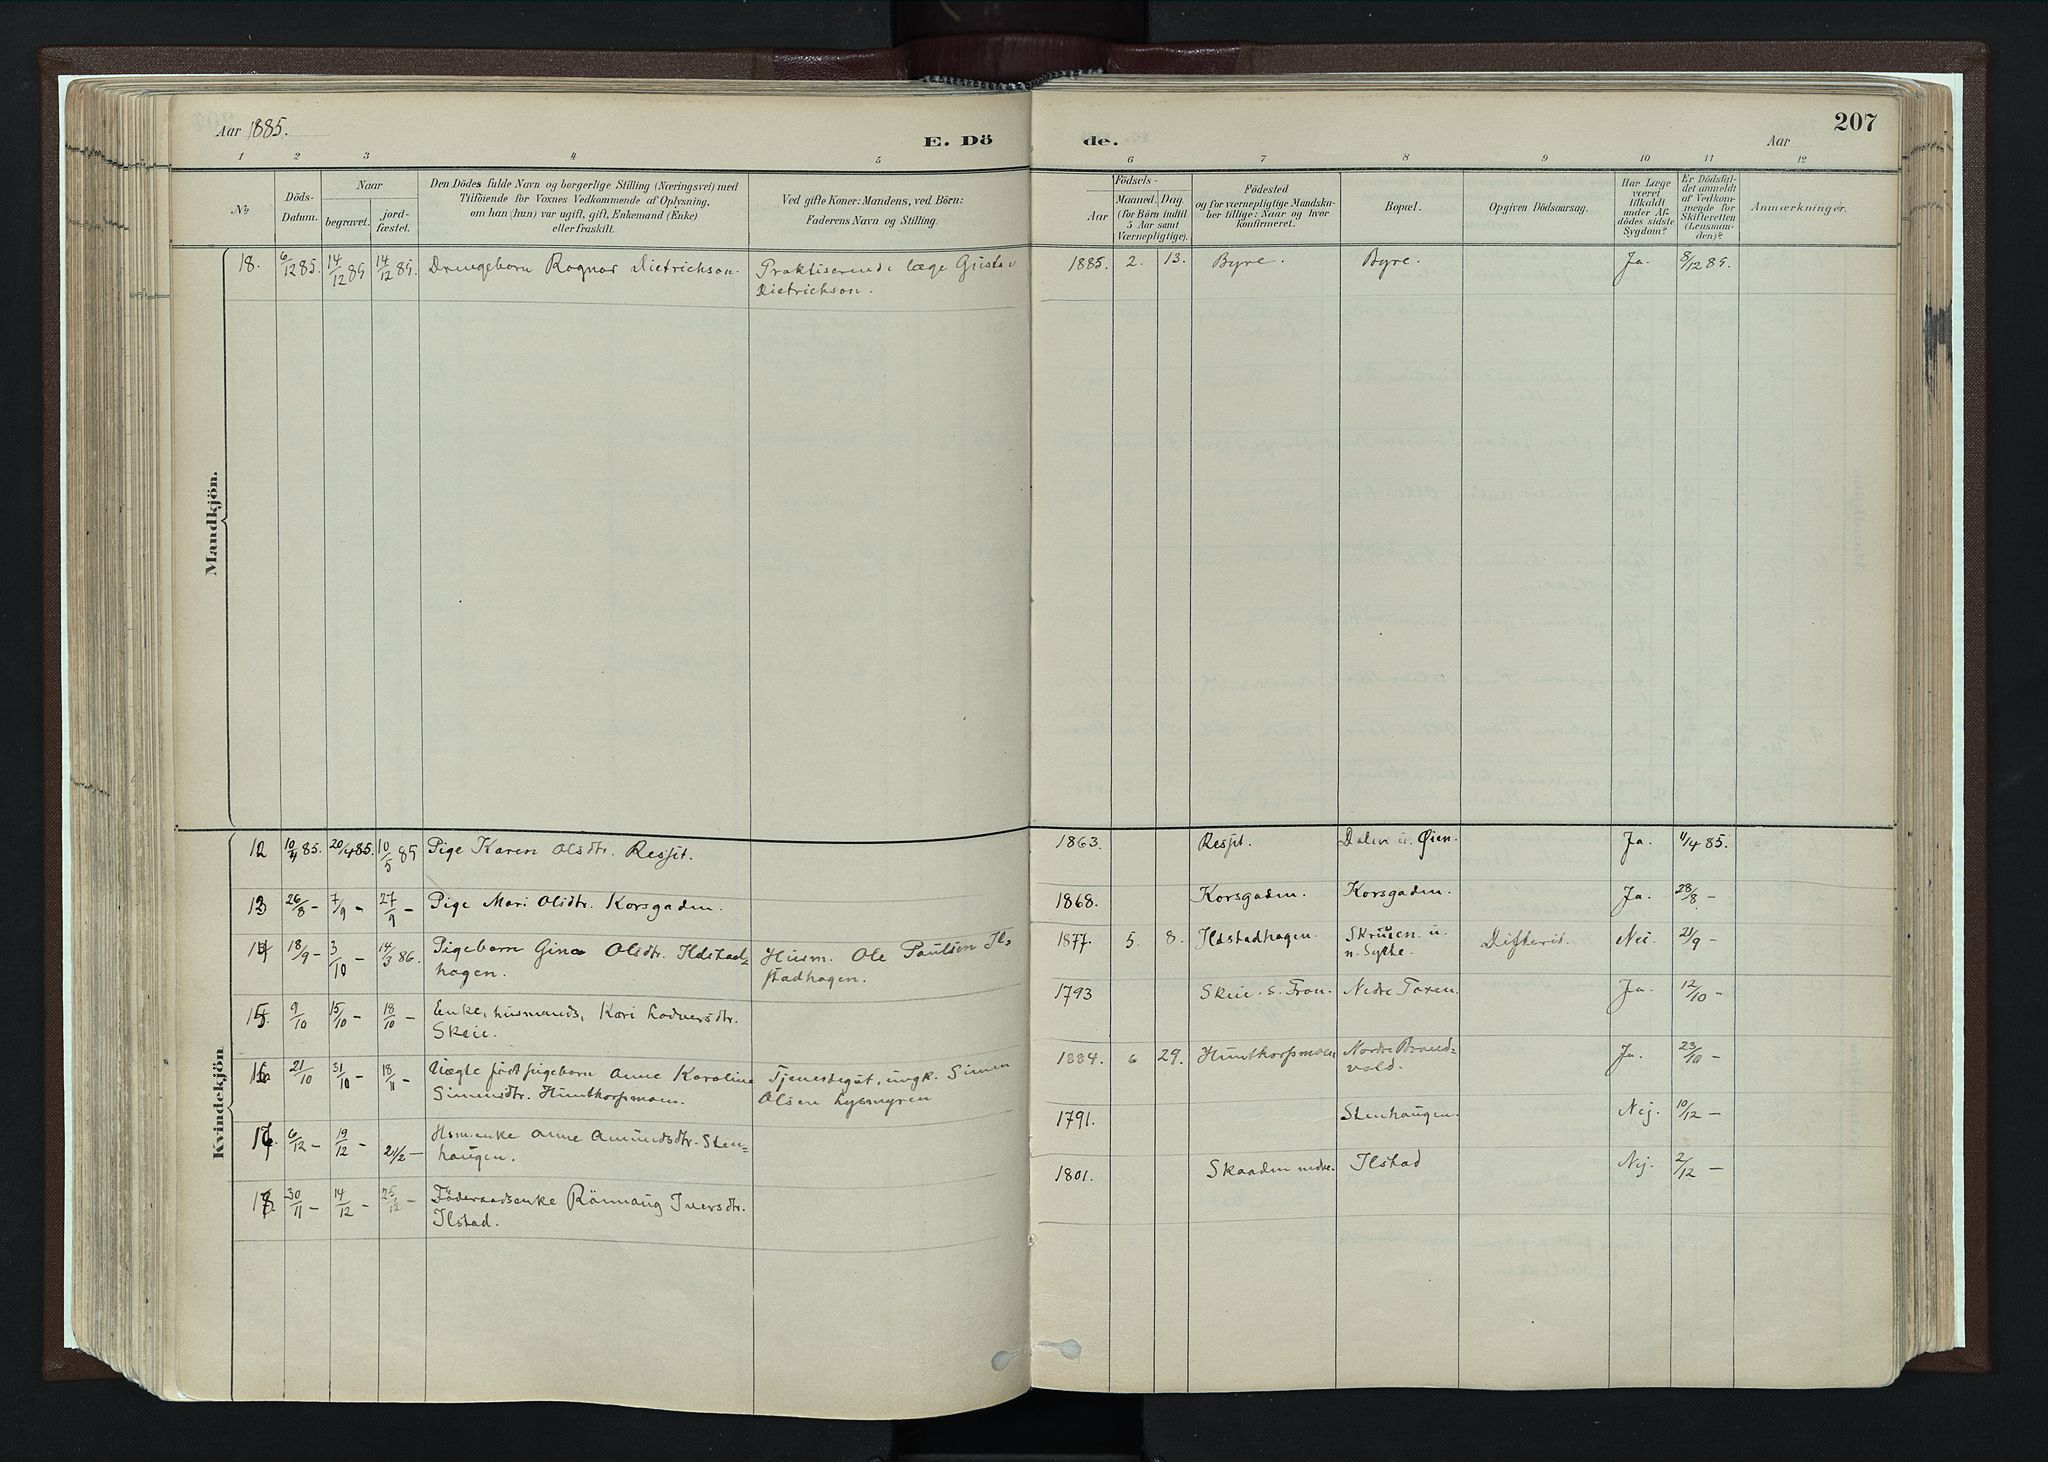 Aar 1885.
E. Dö
1 2 3 4 5
№
Döds-
Datum.
Naar
begravet.
jord-
fæstet.
Den Dödes fulde Navn og borgerlige Stilling (Næringsvei) med
Tilföiende for Voxnes Vedkommende af Oplysning,
om han (hun) var ugift, gift, Enkemand (Enke)
eller fraskilt.
Ved gifte Koner: Mandens, ved Börn:
Faderens Navn og Stilling.
Mandkjön.
18. 6/12 85. 14/12 85 14/12 85. Drengebarn Ragnar Dietrichson. Praktiserende læge Gustav
Dietrichson.
Kvindekjön
12 10/4 85. 20/4 85. 10/5 85 Pige Karen Olsdtr. Resjit.
13 26/8 – 7/9 – 27/9 – Pige Mari Olsdtr. Korsgaden.
14 18/9 – 3/10 – 14/3 86. Pigebarn Gina Olsdtr. Ildstad- Husm. Ole Paulsen Il-
hagen. stadhagen.
15. 9/10 15/10 – 18/10 – Enke, husmands, Kari Lodversdtr.
Skeie.
16 21/10 31/10 – 18/11 – Uægte födt pigebarn Anne Karoline Tjenestegut, ungk. Simen
Simensdtr. Hunthorpmoen. Olsen Lysmyren
17. 6/12 – 19/12 – 21/2 – Hsm.enke Anne Amundsdtr. Sten-
haugen.
18. 30/11 – 14/12 – 25/12 – Föderaadsenke Rönnaug Iversdtr.
Ilstad.
207
de.
Aar
6 7 8 9 10 11 12
Födsels-
Aar
Maaned. Dag.
(for Börn indtil
5 Aar samt
Værnepligtige).
Födested
og for værnepligtige Mandska-
ber tillige: Naar og hvor
konfirmeret.
Bopæl.
Opgiven Dödsaarsag.
Har Læge
været
tilkaldt
under Af-
dödes sidste
Sygdom?
Er Dödsfal-
det anmeldt
af Vedkom-
mende for
Skifteretten
(Lensman-
den)?
Anmærkninger.
1885. 2. 13. Byre. Byre. Ja. 8/12 85.
1863. Resjit. Dalen u. Øien. Ja. 11/4 85.
1868. Korsgaden. Korsgaden. Ja. 28/8 –
1877. 5. 8. Ildstadhagen. u.
n. Sylte. Difterit. Nei. 21/9 –
1793 Skeie. S. Fron. Nedre Ja. 12/10 –
1884. 6 29. Hunthorpmoen Nordre Brand-
vold. Ja. 23/10 –
1791. Stenhaugen. Nej. 10/12 –
1801. Skaaden nedre. Ilstad Nej. 2/12 –